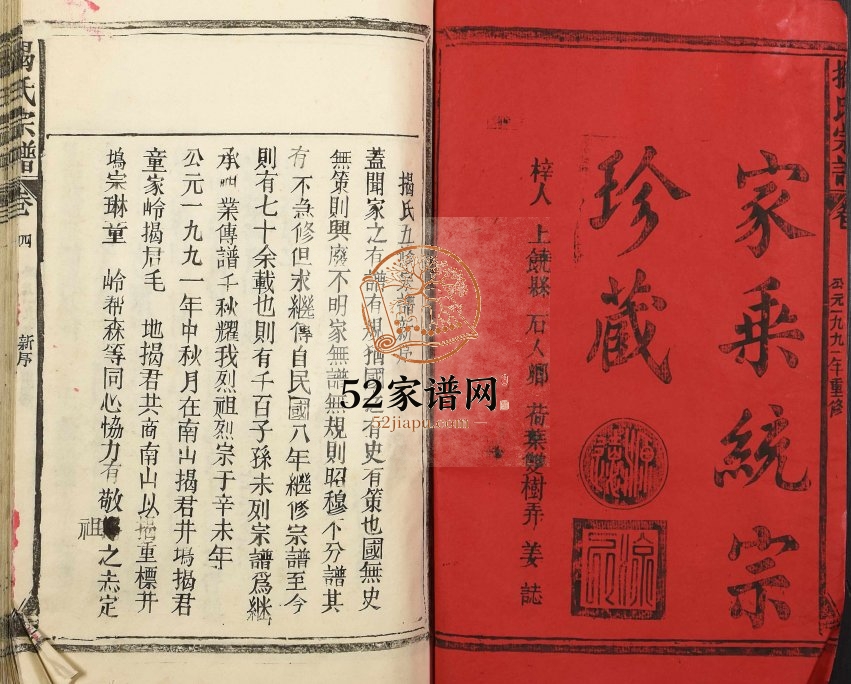 揭氏宗譜 卷
公元一九九一年重修
家乘統宗
珍藏
梓人 上饒縣 石人鄉 荷葉雙樹弄 姜 誌
揭氏五修宗譜新序
蓋聞家之有譜有規猶國之有史有策也國無史
無策則興廢不明家無譜無規則昭穆不分譜其
有不急修但求繼傳自民國八年繼修宗譜至今
則有七十余載也則有千百子孫未列宗譜爲継
承 業傳譜千秋耀我烈祖烈宗于辛未年
公元一九九一年中秋月在南山揭君井塢揭君
童家岭揭眉毛 地揭君共商南山以 重標井
塢宗琳童 岭帮森等同心協力有敬 祖之志定
揭氏宗譜 卷 四 新序
52家谱网
52jiapu.com